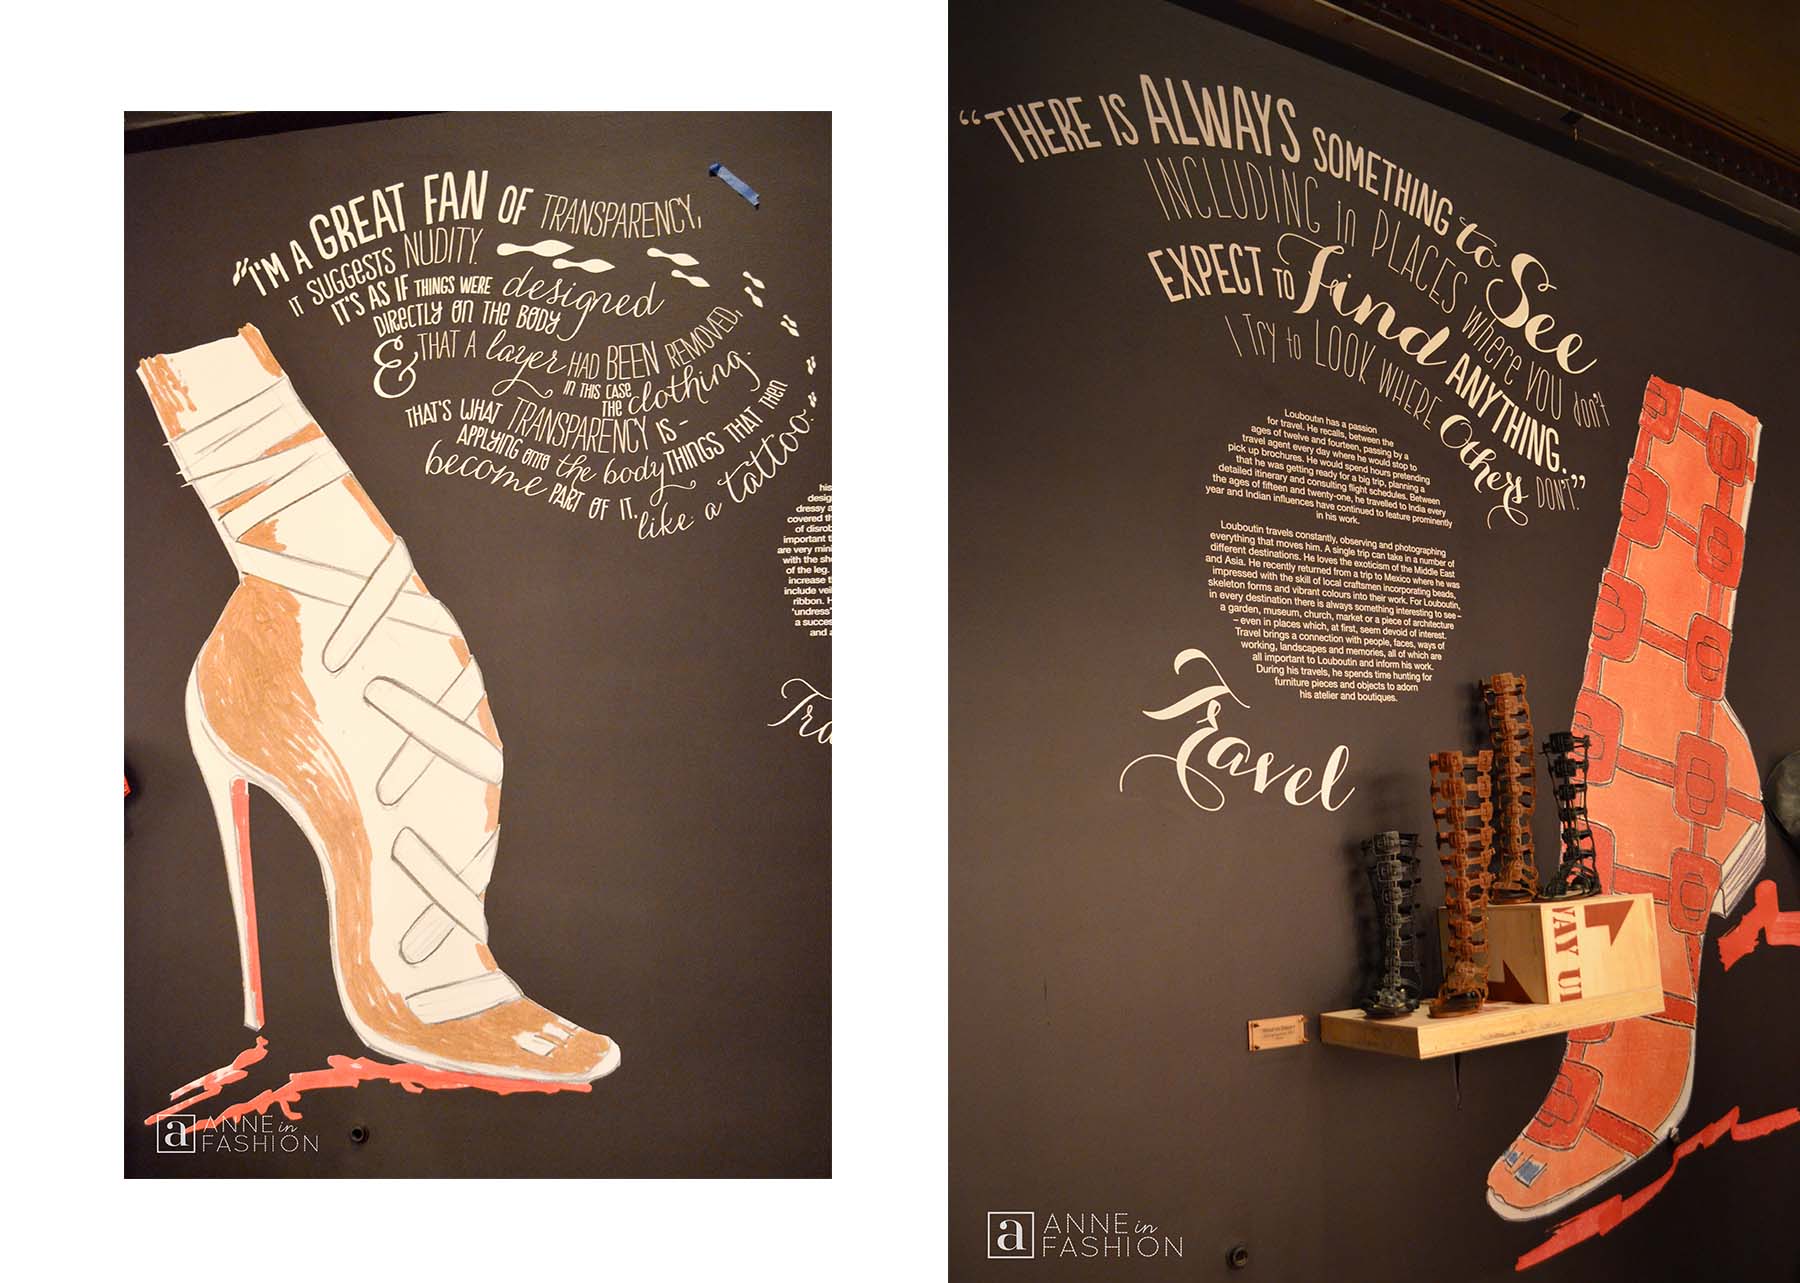 "I'M A GREAT FAN OF TRANSPARENCY,
IT SUGGESTS NUDITY.
IT'S AS IF THINGS WERE designed
DIRECTLY ON THE BODY
& THAT A layer HAD BEEN REMOVED,
IN THIS CASE
THE clothing.
THAT'S WHAT TRANSPARENCY IS –
APPLYING ONTO the body THINGS THAT THEN
become PART OF IT. like a tattoo.
his
desig
dressy a
covered th
of disrob
important t
are very mini
with the sh
of the leg.
increase t
include vei
ribbon. H
'undress'
a succes
and a
Tra
a ANNE in
FASHION
"THERE IS ALWAYS SOMETHING to See
INCLUDING in PLACES where YOU don't
EXPECT TO Find ANYTHING.
I Try to LOOK WHERE Others DON'T."
Louboutin has a passion
for travel. He recalls, between the
ages of twelve and fourteen, passing by a
travel agent every day where he would stop to
pick up brochures. He would spend hours pretending
that he was getting ready for a big trip, planning a
detailed itinerary and consulting flight schedules. Between
the ages of fifteen and twenty-one, he travelled to India every
year and Indian influences have continued to feature prominently
in his work.
Louboutin travels constantly, observing and photographing
everything that moves him. A single trip can take in a number of
different destinations. He loves the exoticism of the Middle East
and Asia. He recently returned from a trip to Mexico where he was
impressed with the skill of local craftsmen incorporating beads,
skeleton forms and vibrant colours into their work. For Louboutin,
in every destination there is always something interesting to see –
a garden, museum, church, market or a piece of architecture
– even in places which, at first, seem devoid of interest.
Travel brings a connection with people, faces, ways of
working, landscapes and memories, all of which are
all important to Louboutin and inform his work.
During his travels, he spends time hunting for
furniture pieces and objects to adorn
his atelier and boutiques.
Travel
WAY UP
a ANNE in
FASHION